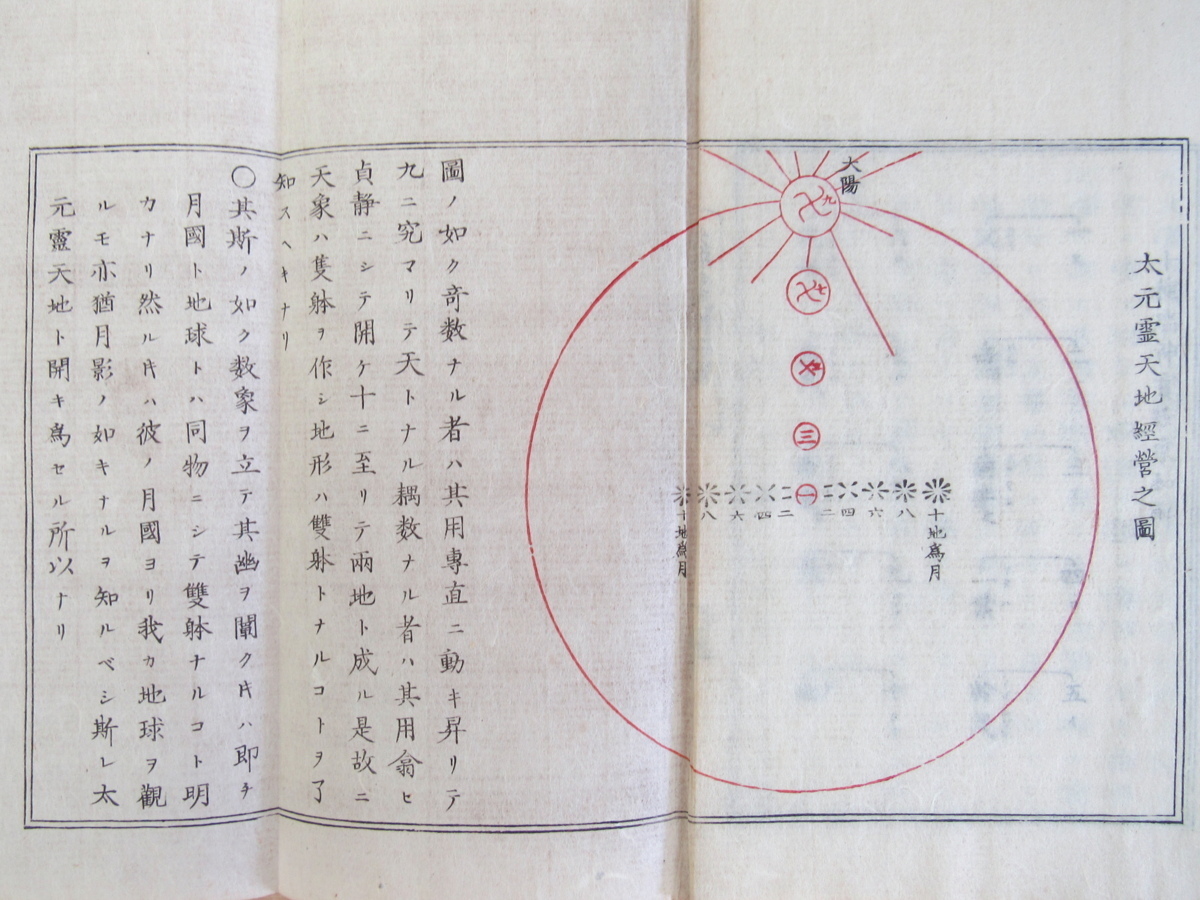 太元霊天地經営之圖
大陽
九
七
三
一
十 八 六 四 二 二 四 六 八 十
地為月
地為月
圖ノ如ク奇数ナル者ハ其用專直ニ動キ昇リテ
九ニ究マリテ天トナル耦数ナル者ハ其用翕ヒ
貞静ニシテ開ケ十ニ至リテ兩地ト成ル是故ニ
天象ハ隻躰ヲ作シ地形ハ雙躰トナルコトヲ了
知スヘキナリ
〇其斯ノ如ク数象ヲ立テ其幽ヲ闡クキハ即チ
月國ト地球トハ同物ニシテ雙躰ナルコト明
カナリ然ルキハ彼ノ月國ヨリ我カ地球ヲ觀
ルモ亦猶月影ノ如キナルヲ知ルベシ斯レ太
元靈天地ト開キ為セル所以ナリ